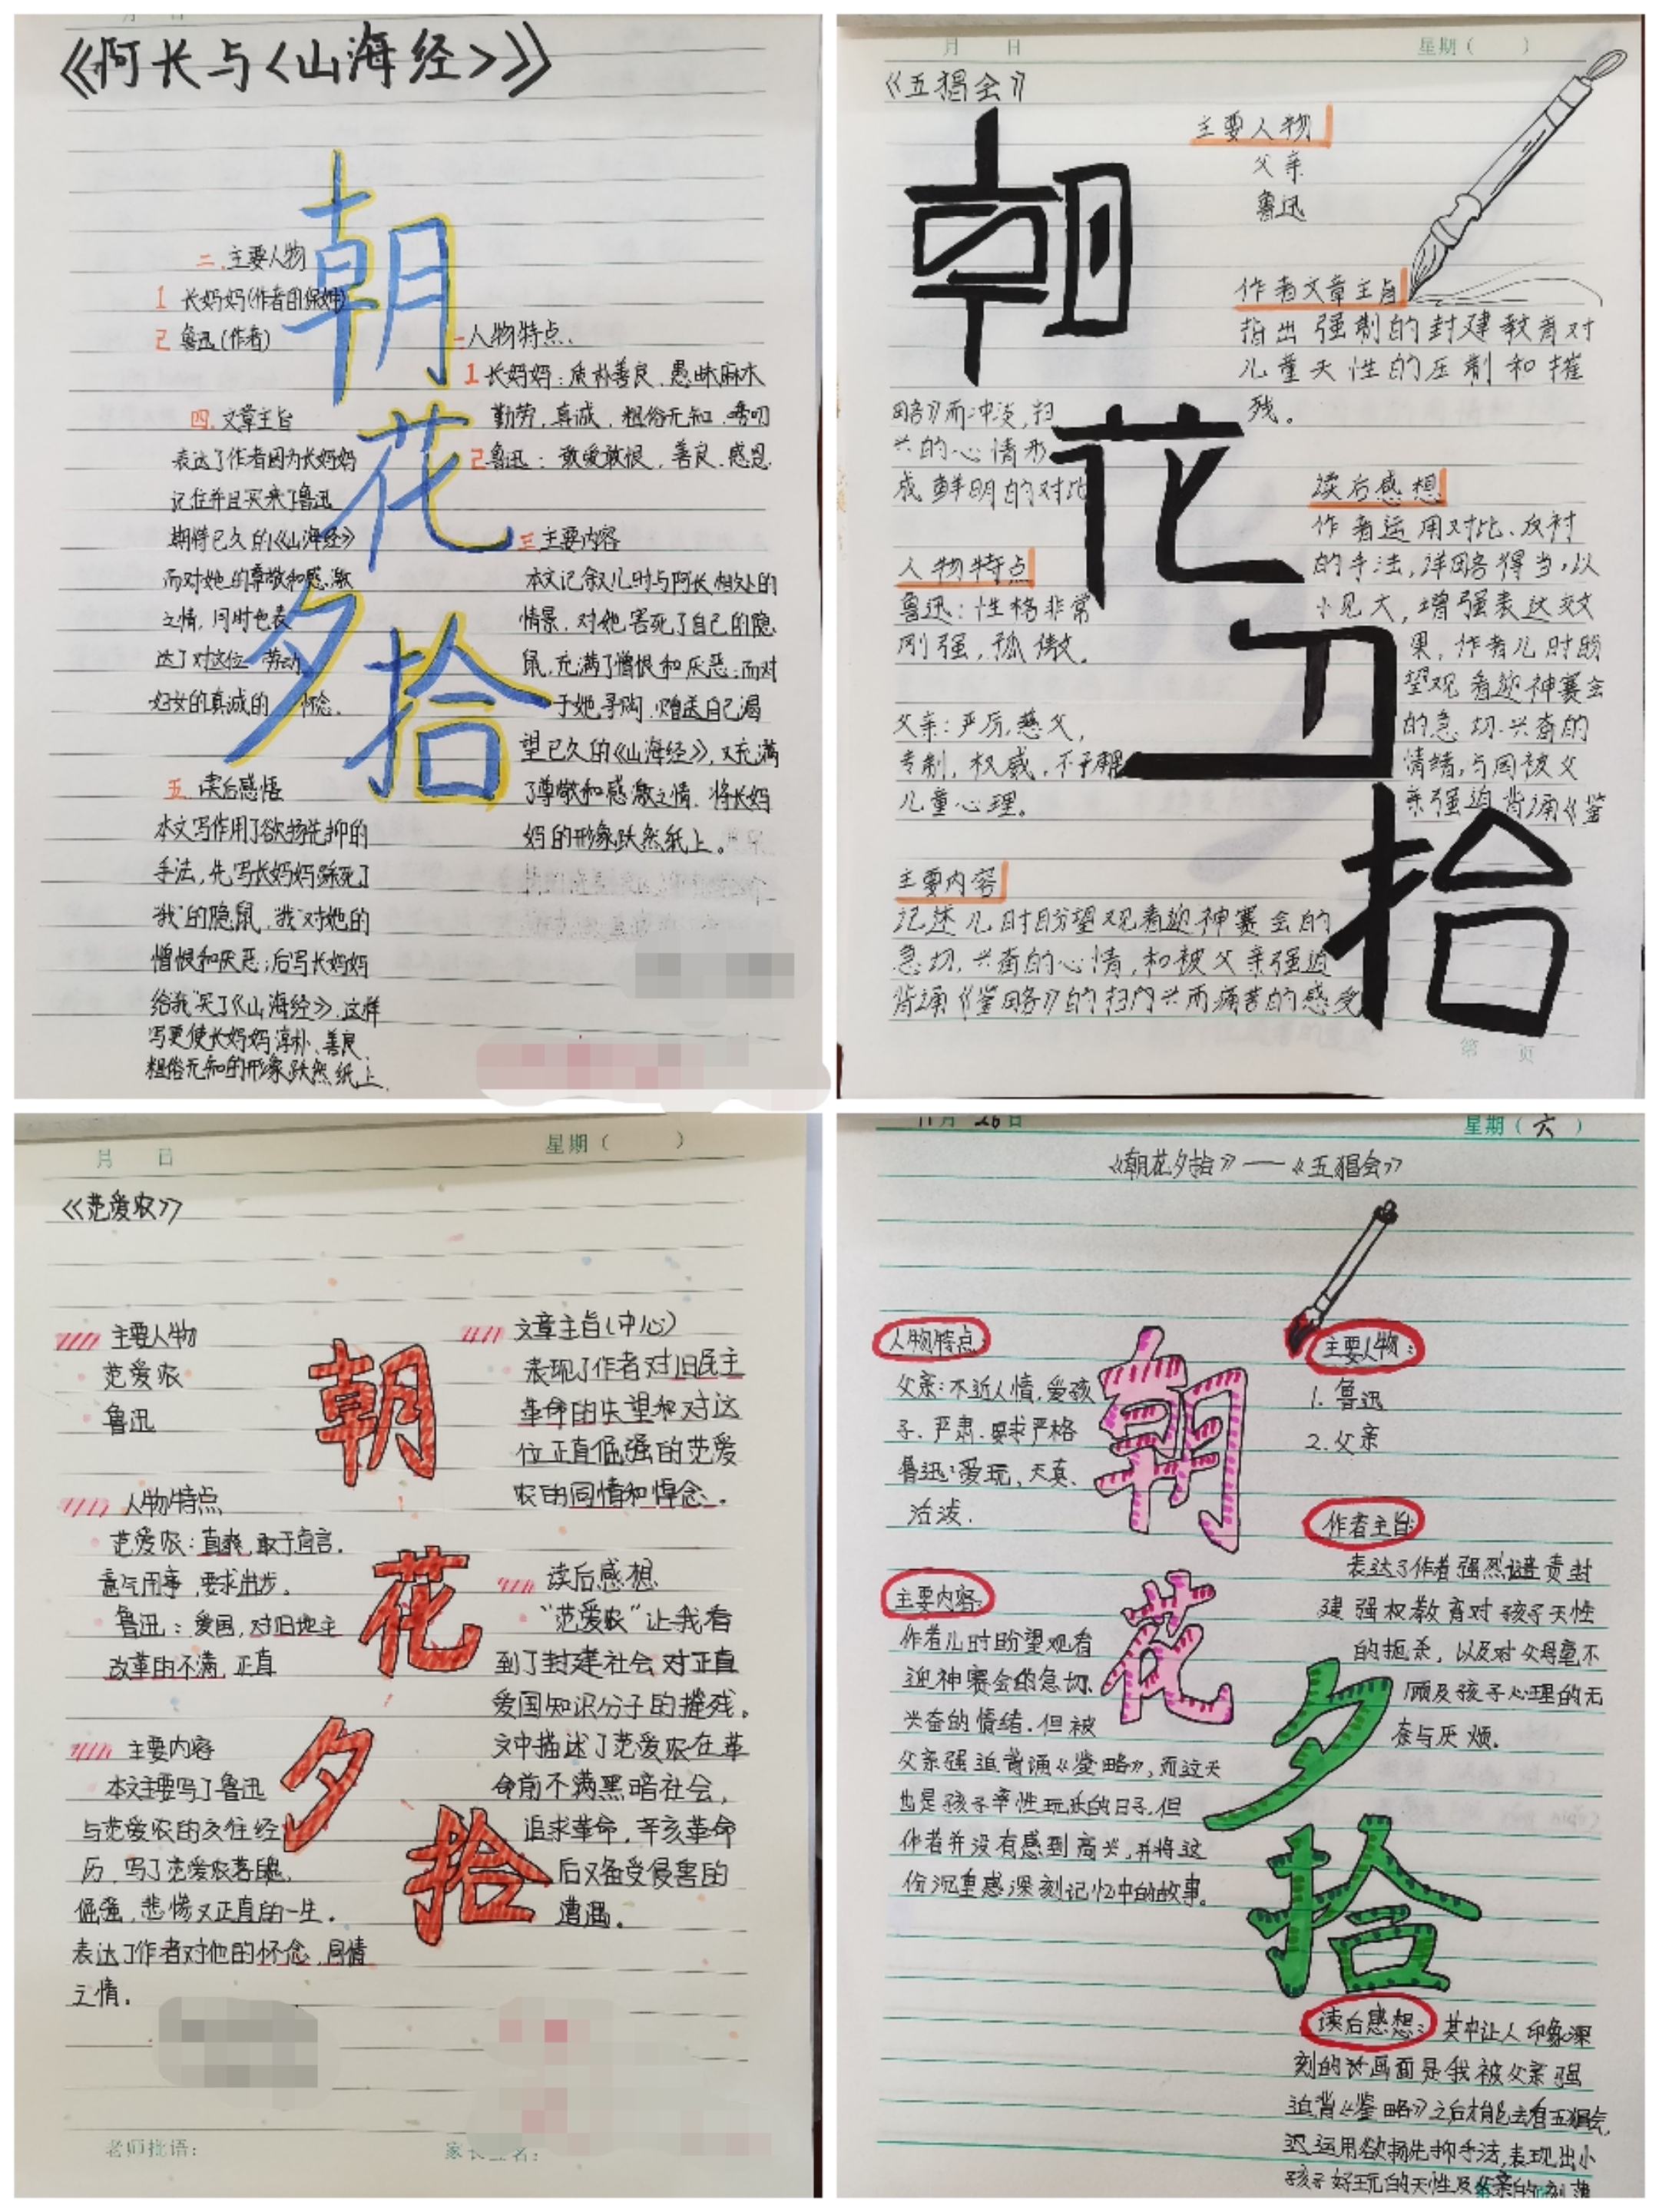 《阿长与〈山海经〉》
朝花夕拾
二.主要人物
1 长妈妈(作者的保姆)
2 鲁迅(作者)
一人物特点.
1长妈妈:质朴善良.愚昧麻木
勤劳.真诚.粗俗无知.唠叨
2鲁迅:敢爱敢恨.善良.感恩.
四.文章主旨
表达了作者因为长妈妈
记住并且买来了鲁迅
期待已久的《山海经》
而对她的尊敬和感激
之情,同时也表
达了对这位 劳动
妇女的真诚的 怀念.
三主要内容
本文记叙儿时与阿长相处的
情景,对她害死了自己的隐
鼠,充满了憎恨和厌恶;而对
于她寻购.赠送自己渴
望已久的《山海经》,又充满
了尊敬和感激之情.将长妈
妈的形象跃然纸上。
五.读后感悟
本文写作用了欲扬先抑的
手法,先写长妈妈踩死了
"我"的隐鼠,"我"对她的
憎恨和厌恶;后写长妈妈
给"我"买了《山海经》.这样
写更使长妈妈淳朴、善良、
粗俗无知的形象跃然纸上.
月 日
星期( )
《五猖会》
朝花夕拾
主要人物
父亲
鲁迅
作者文章主旨
指出强制的封建教育对
儿童天性的压制和摧
残。
读后感想
作者运用对比、反衬
的手法,详略得当,以
小见大,增强表达效
果,作者儿时盼
望观看迎神赛会
的急切.兴奋的
情绪,与因被父
亲强迫背诵《鉴
略》而冲淡,扫
兴的心情形
成鲜明的对比
人物特点
鲁迅:性格非常
刚强,孤傲。
父亲:严厉,慈父,
专制,权威,不予理解
儿童心理。
主要内容
记述儿时盼望观看迎神赛会的
急切,兴奋的心情,和被父亲强迫
背诵《鉴略》的扫兴而痛苦的感受
第 页
月 日
星期( )
《范爱农》
朝花夕拾
主要人物
范爱农
鲁迅
人物特点
范爱农:直爽,敢于直言.
意气用事,要求出步。
鲁迅:爱国,对旧地主
改革的不满,正直
主要内容
本文主要写了鲁迅
与范爱农的交往经
历,写了范爱农落魄、
倔强,悲惨又正直的一生.
表达了作者对他的怀念,同情
之情.
文章主旨(中心)
表现了作者对旧民主
革命的失望和对这
位正直倔强的范爱
农的同情和悼念.
读后感想
"范爱农"让我看
到了封建社会对正直
爱国知识分子的摧残。
文中描述了范爱农在革
命前不满黑暗社会,
追求革命,辛亥革命
后又备受侵害的
遭遇。
老师批语:
11月 26日
星期(六)
《朝花夕拾》——《五猖会》
朝花夕拾
人物特点:
父亲:不近人情,爱孩
子、严肃、要求严格
鲁迅:爱玩,天真、
活泼.
主要内容:
作者儿时盼望观看
迎神赛会的急切、
兴奋的情绪.但被
父亲强迫背诵《鉴略》,而这天
也是孩子率性玩乐的日子.但
作者并没有感到高兴,并将这
份沉重感深刻记忆中的故事。
主要人物:
1.鲁迅
2.父亲
作者主旨:
表达了作者强烈谴责封
建强权教育对孩子天性
的扼杀,以及对父母毫不
顾及孩子心理的无
奈与厌烦.
读后感想: 其中让人印象深
刻的画面是我被父亲强
迫背《鉴略》之后才能去看五猖会,
运用欲扬先抑手法,表现出小
孩子好玩的天性及父亲的